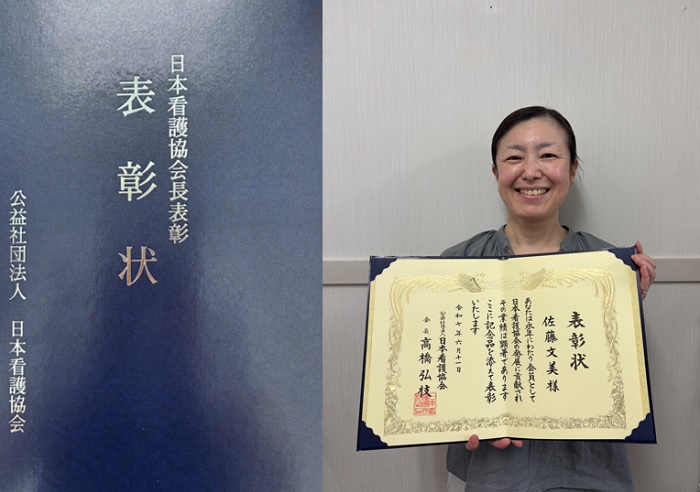 日本看護協会長表彰
表彰状
公益社団法人 日本看護協会
表彰状
佐藤文美様
あなたは永年にわたり会員として
日本看護協会の発展に貢献され
その業績は顕著であります
ここに記念品を添えて表彰
いたします
令和七年六月十一日
公益社団法人日本看護協会
会長 高橋弘枝